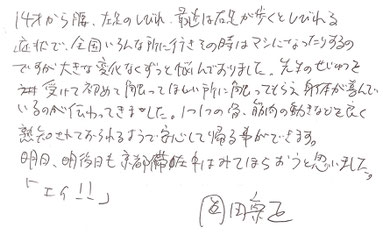 14才から腰、左足のしびれ、最近は右足が歩くとしびれる
症状で、全国いろんな所に行きその時はマシになったりするの
ですが大きな変化なくずっと悩んでおりました。先生のせじゅつを
受けて初めて触ってほしい所に触ってもらえ身体が喜んで
いるのが伝わってきました。1つ1つの骨、筋肉の動きなどを良く
熟知されておられるようで安心して帰る事ができます。
明日、明後日も京都備在中はみてもらおうと思いました。
「エイ!!」